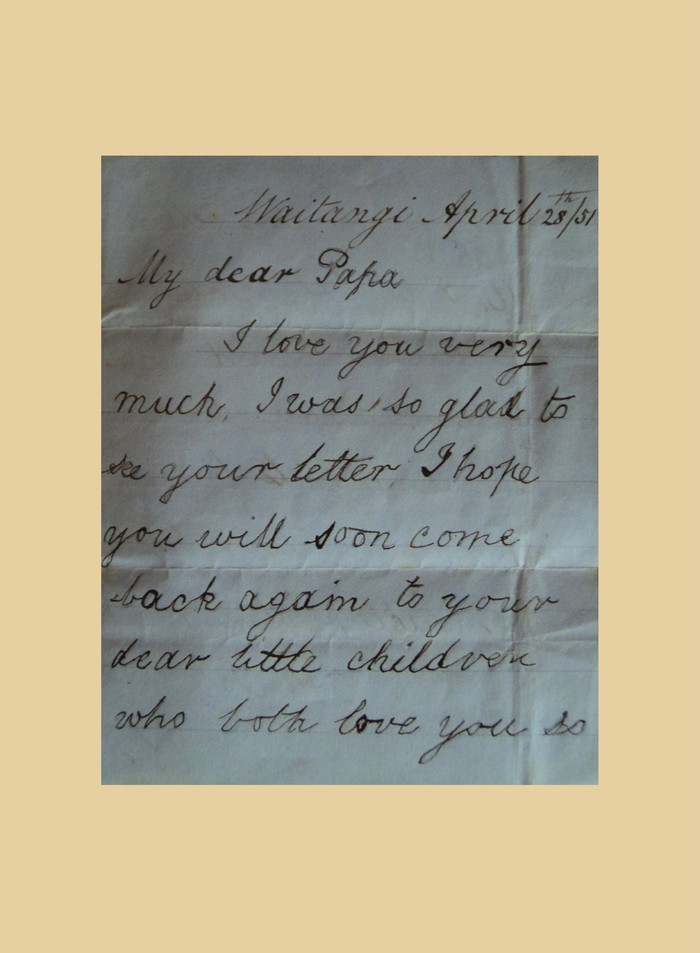 Waitangi April 28th/51
My dear Papa
I love you very
much, I was so glad to
see your letter. I hope
you will soon come
back again to your
dear little children
who both love you so